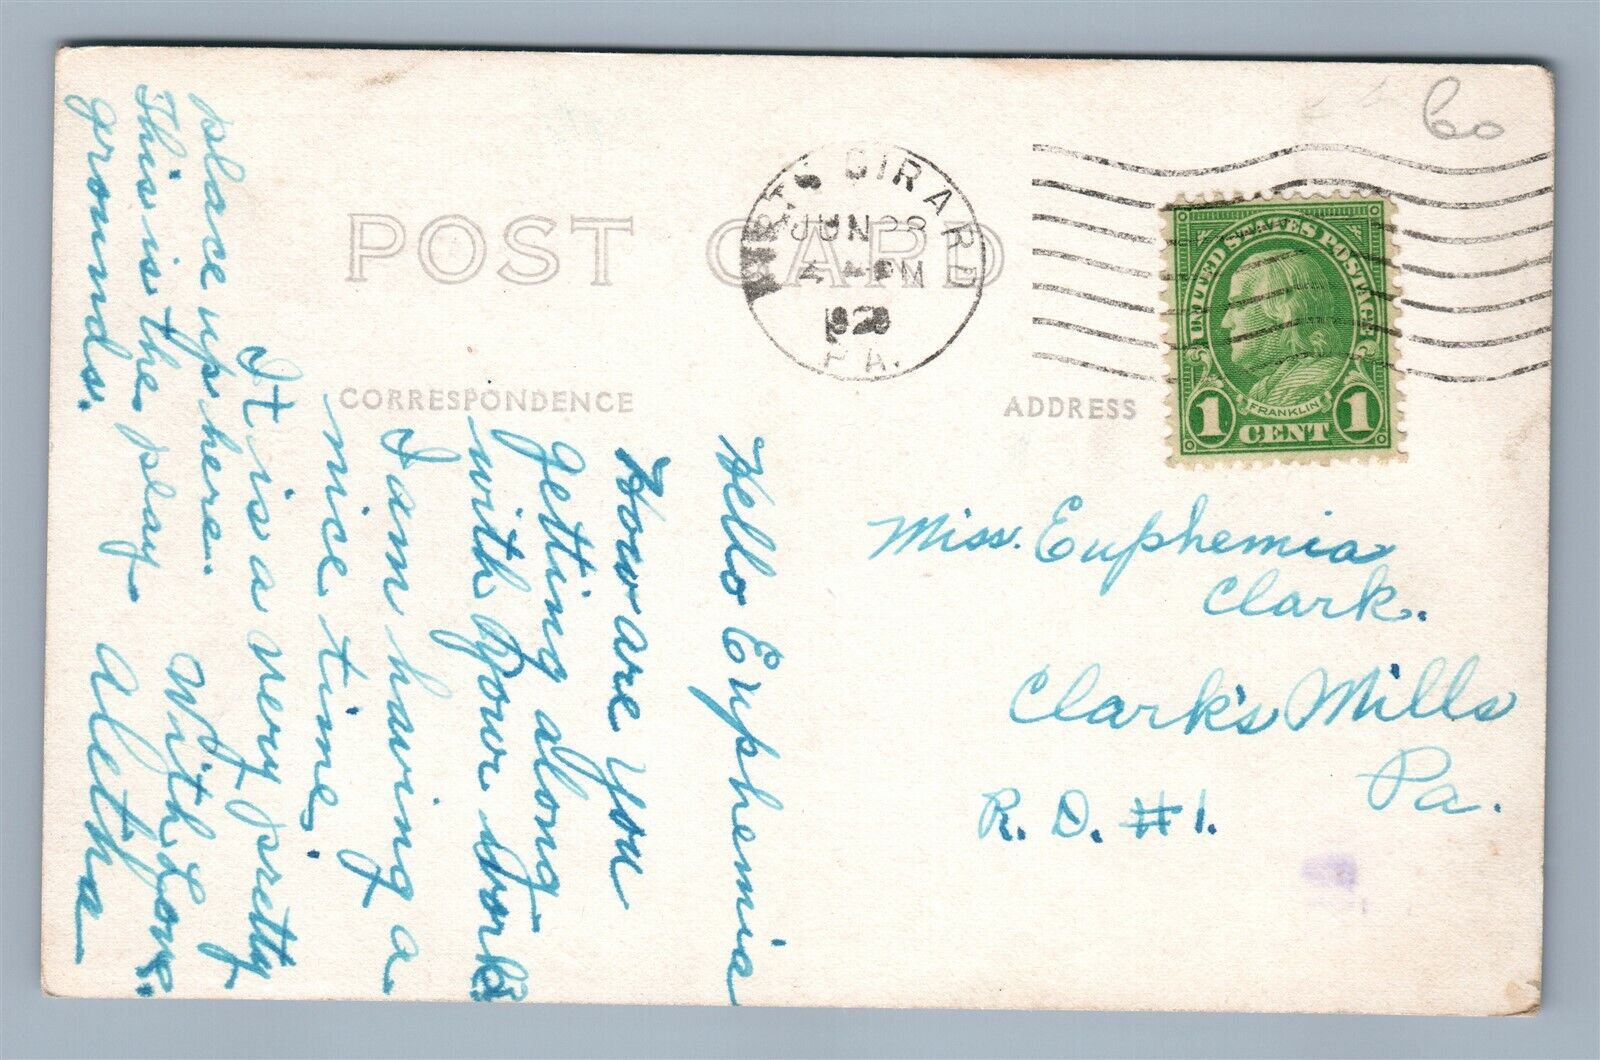 60
GIRARD
JUN 28
PM
1928
PA.
UNITED STATES POSTAGE
FRANKLIN
1 CENT 1
POST CARD
CORRESPONDENCE
ADDRESS
Hello Euphemia
How are you
getting along
with your work
I am having a
nice time.
It is a very pretty
place up here.
This is the play-
grounds.
With Love.
Aletha
Miss. Euphemia
Clark.
Clark's Mills
Pa.
R. D. #1.